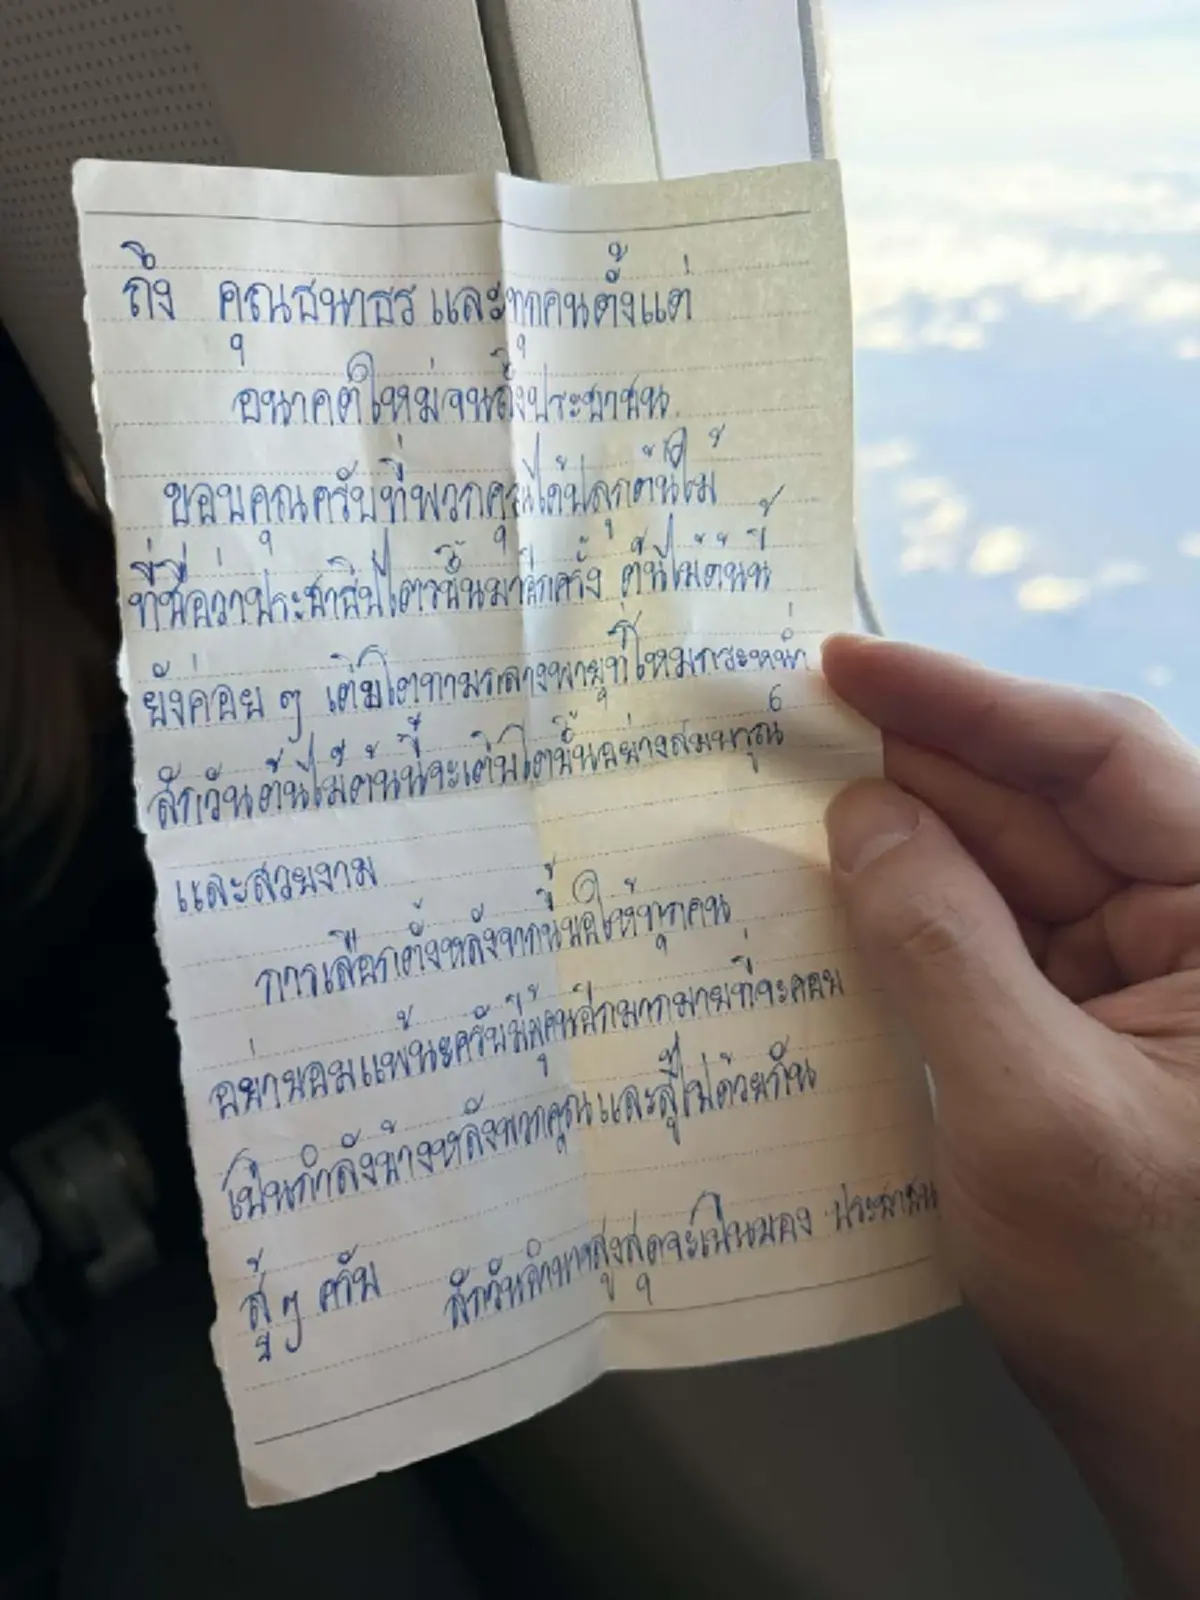 ถึง คุณธนาธร และทุกคนตั้งแต่
อนาคตใหม่จนถึงประชาชน
ขอบคุณครับที่พวกคุณได้ปลูกต้นไม้
ที่ชื่อว่าประชาธิปไตยขึ้นมาอีกครั้ง ต้นไม้ต้นนี้
ยังค่อย ๆ เติบโตท่ามกลางพายุที่โหมกระหน่ำ
สักวันต้นไม้ต้นนี้จะเติบโตขึ้นอย่างสมบรูณ์
และสวยงาม
การเลือกตั้งหลังจากนี้ขอให้ทุกคน
อย่ายอมแพ้นะครับมีผู้คนอีกมากมายที่จะคอย
เป็นกำลังข้างหลังพวกคุณและสู้ไปด้วยกัน
สู้ ๆ ครับ สักวันอำนาจสูงสุดจะเป็นของ ประชาชน